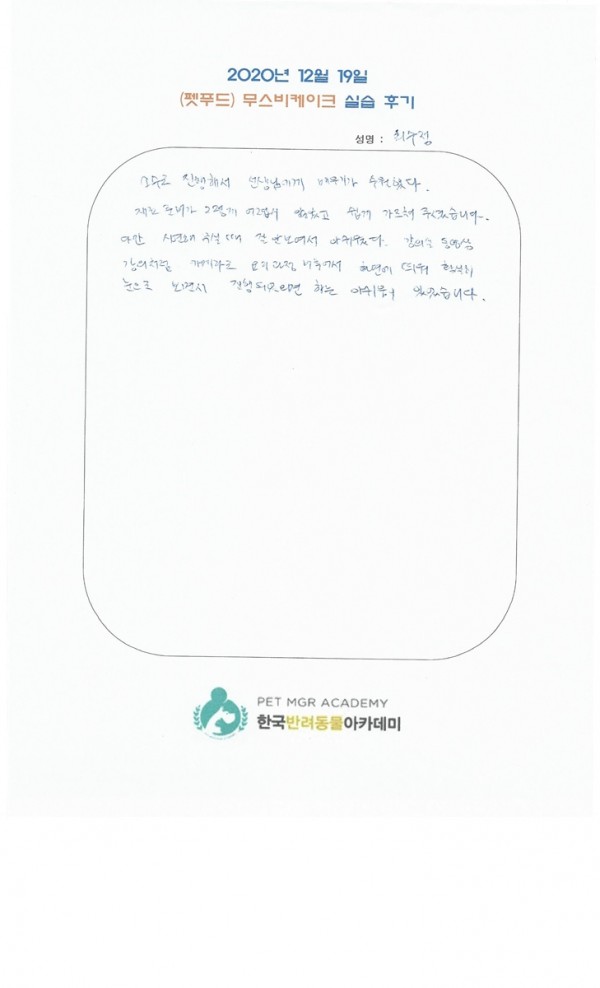 2020년 12월 19일
(펫푸드) 무스비케이크 실습 후기
성명 : 최수정
소수로 진행해서 선생님에게 배우기가 수월했다.
재료 준비가 그렇게 어렵지 않았고 쉽게 가르쳐 주셨습니다.
다만 시연해 주실 때 잘 안보여서 아쉬웠다. 강의실 동영상
강의처럼 카메라로 요리과정 비추어서 화면에 띄워 확실히
눈으로 보면서 진행되었으면 하는 아쉬움이 있었습니다.
PET MGR ACADEMY
한국반려동물아카데미